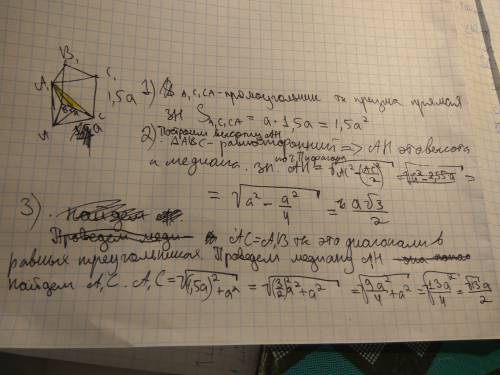 B₁
A₁ C₁
1,5a
A a C
1) A₁C₁CA - прямоугольник тк призма прямая
зн S A₁C₁CA = a · 1,5a = 1,5a²
Построим высоту AH
2) ΔABC - равносторонний => AH это высота
по т. Пифагора
и медиана. зн. AH = √AC² - (AC/2)² =
= √a² - a²/4 = a√3/2
3).
A₁C = A₁B тк это диагонали в
равных преугольниках. Проведем медиану AH
найдем A₁C. A₁C = √(1,5a)² + a² = √(3/2)²a² + a² = √9a²/4 + a² = √13a²/4 = √13a/2